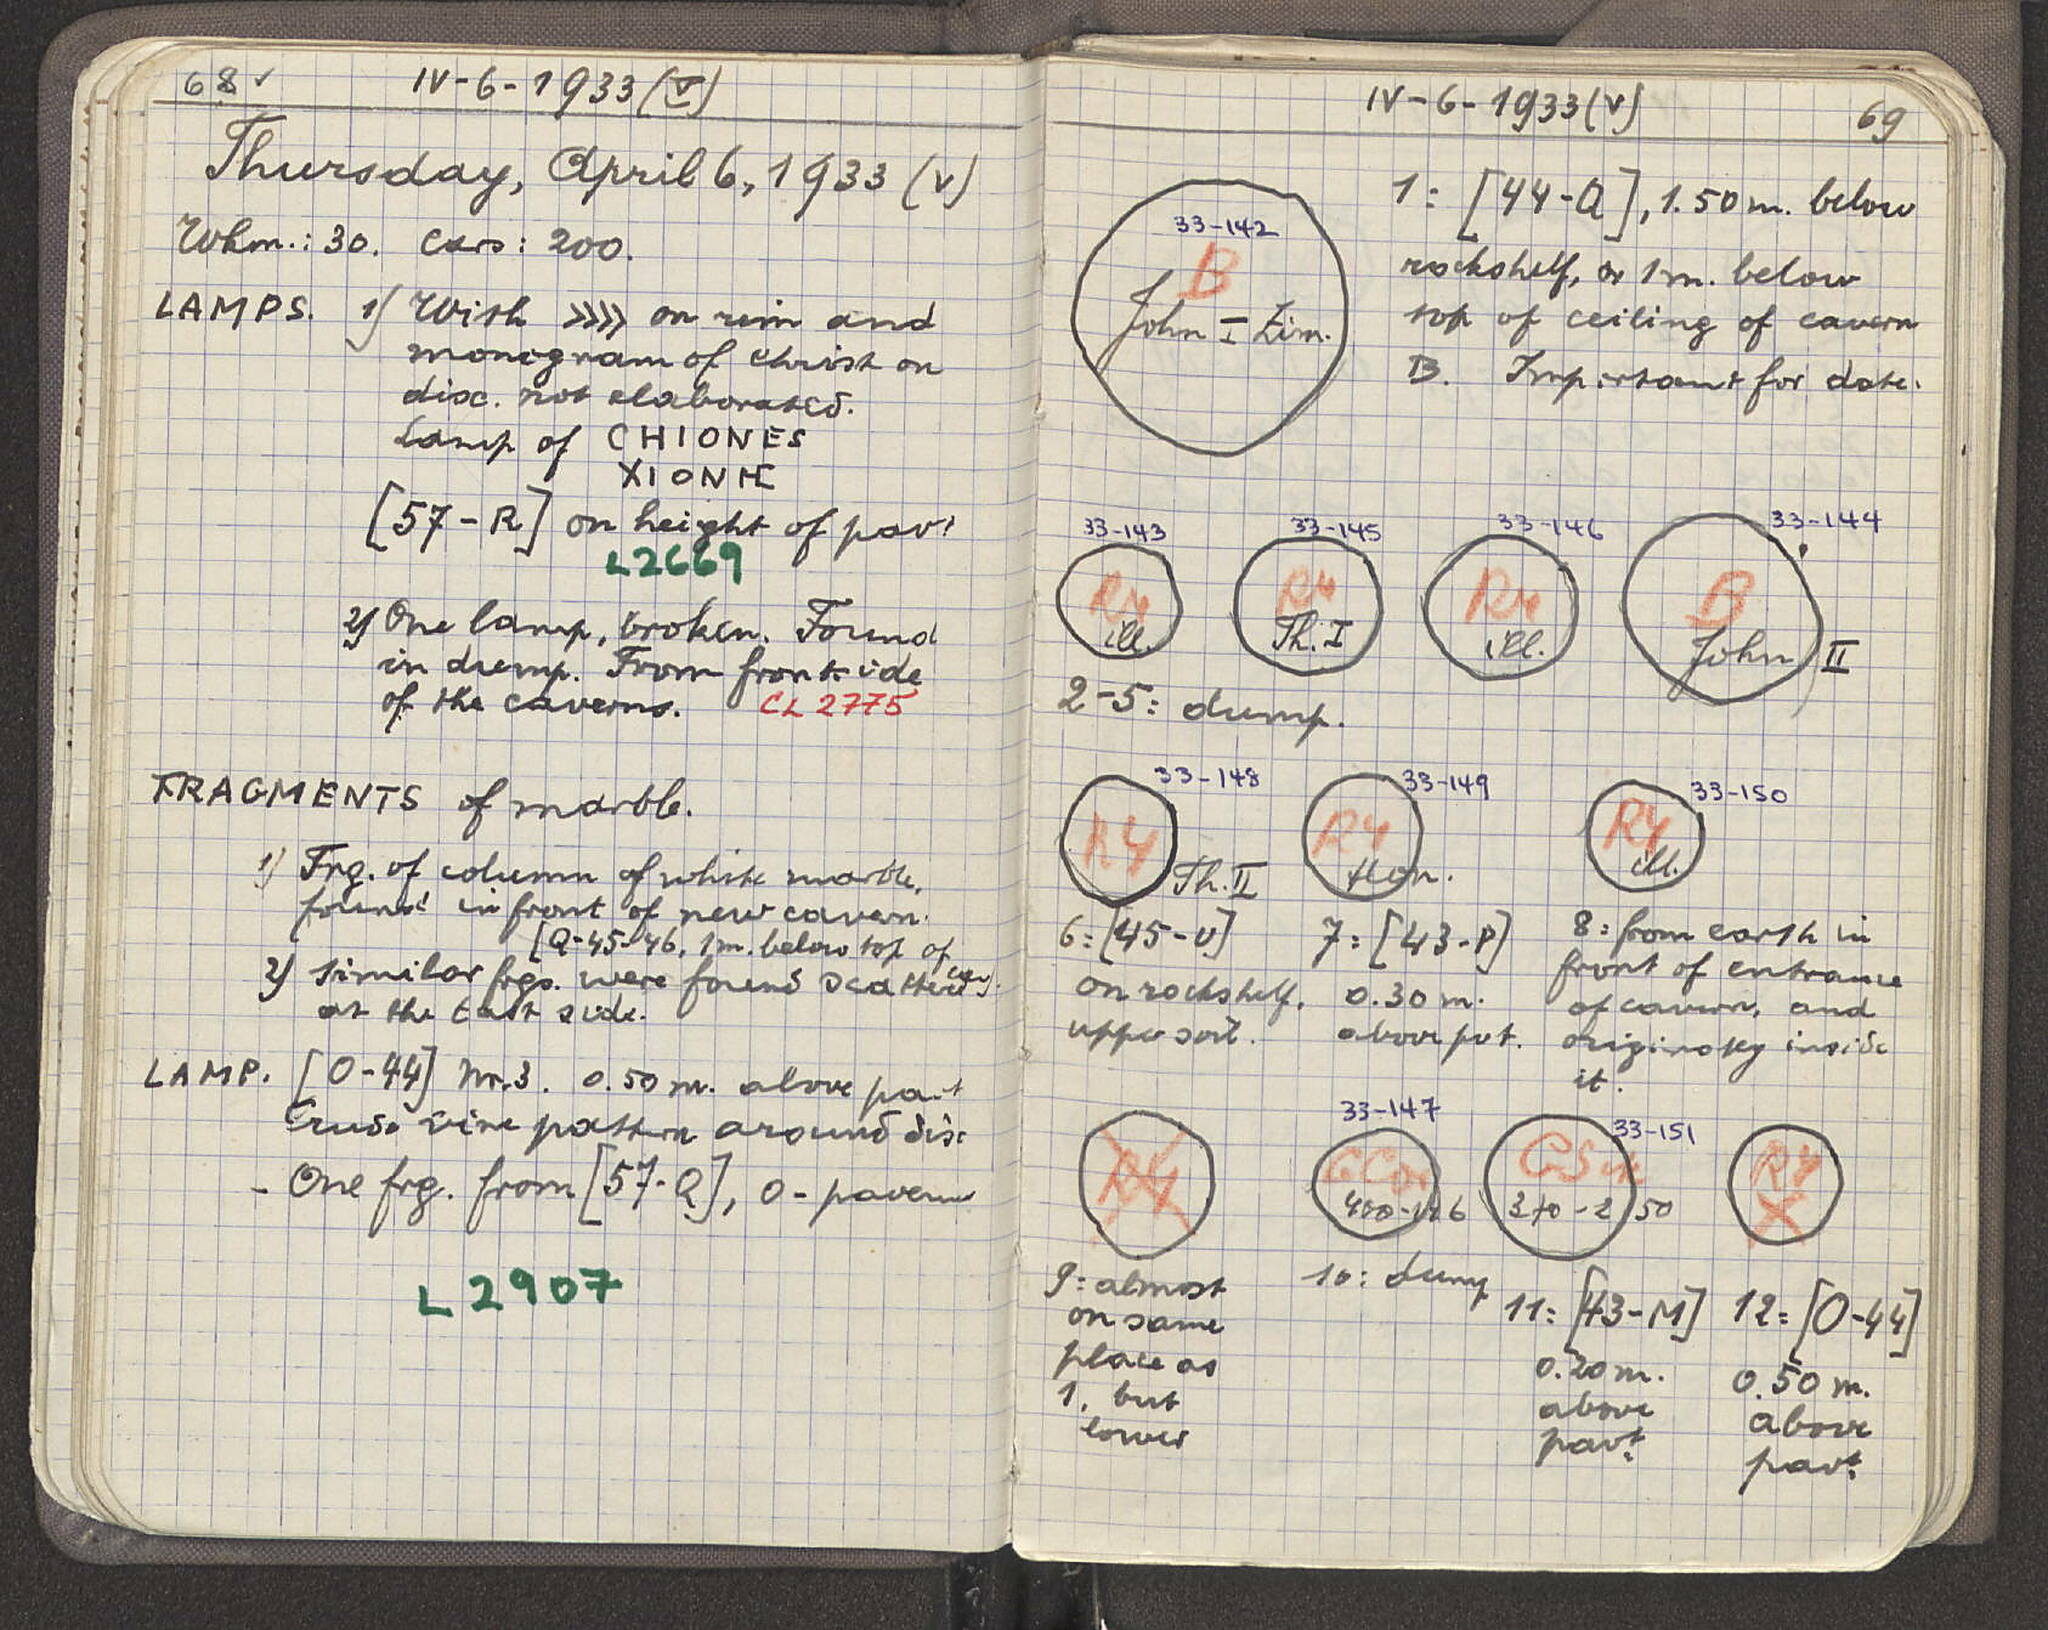 68 ✓
IV-6-1933 (V)
Thursday, April 6, 1933 (V)
Wkm.: 30. Cars: 200.
LAMPS. 1) With >>>> on rim and
monogram of Christ on
disc. not elaborated.
Lamp of CHIONES
ΧΙΟΝΗC
[57-R] on height of pavt
L2669
2) One lamp, broken. Found
in dump. From frontside
of the caverns. CL 2775
FRAGMENTS of marble.
1) Frg. of column of white marble,
found in front of new cavern.
[Q-45-46, 1m. below top of
2) Similar frgs. were found scattered
at the East side.
LAMP. [O-44] Nr. 3. 0.50 m. above pavt
Crude vine pattern around disc
- One frg. from [57-Q], 0- pavem
L 2907
IV-6-1933 (V)
69
33-142
B
John I Zim.
1: [44-Q], 1.50 m. below
rockshelf, or 1 m. below
top of ceiling of cavern
B. Important for date.
33-143
33-145
33-146
33-144
R4
R4
R4
B
ill.
Th. I
ill.
John II
2-5: dump.
33-148
33-149
33-150
R4
R4
R4
Th. II
Hon.
ill.
6: [45-U]
on rockshelf,
upper soil.
7: [43-P]
0.30 m.
above pvt.
8: from earth in
front of entrance
of cavern, and
originaly inside
it.
33-147
33-151
R4
G Cor
R4
400-146
9: almost
on same
place as
1, but
lower
10: dump
11: [43-M]
0.20 m.
above
pavt.
12: [O-44]
0.50 m.
above
pavt.